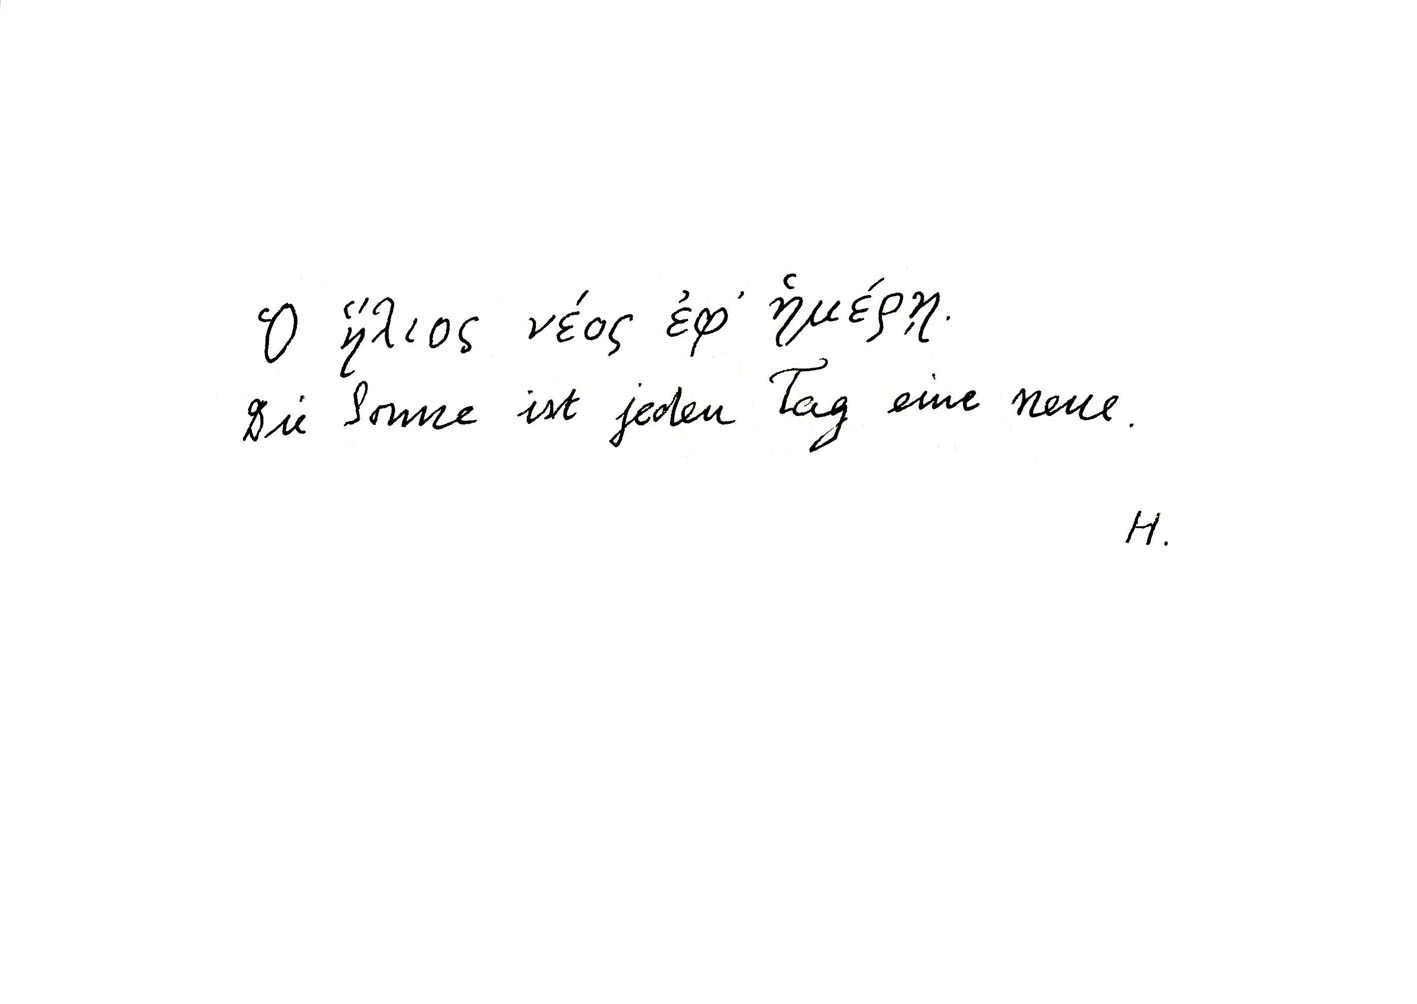 Ὁ ἥλιος νέος ἐφ' ἡμέρῃ.
Die Sonne ist jeden Tag eine neue.
H.